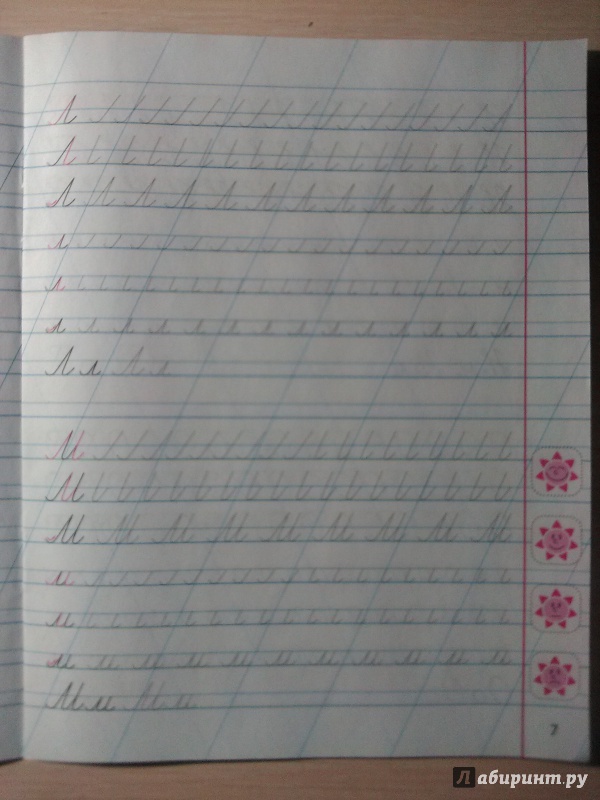 Л
Л
Л Л Л Л Л Л Л Л Л Л Л Л
л
л
л л л л л л л л л л л л л л
Л л Л л
М
М
М М М М М М М М М
м
м
м м м м м м м м м м м
Мм Мм
7
Лабиринт.ру